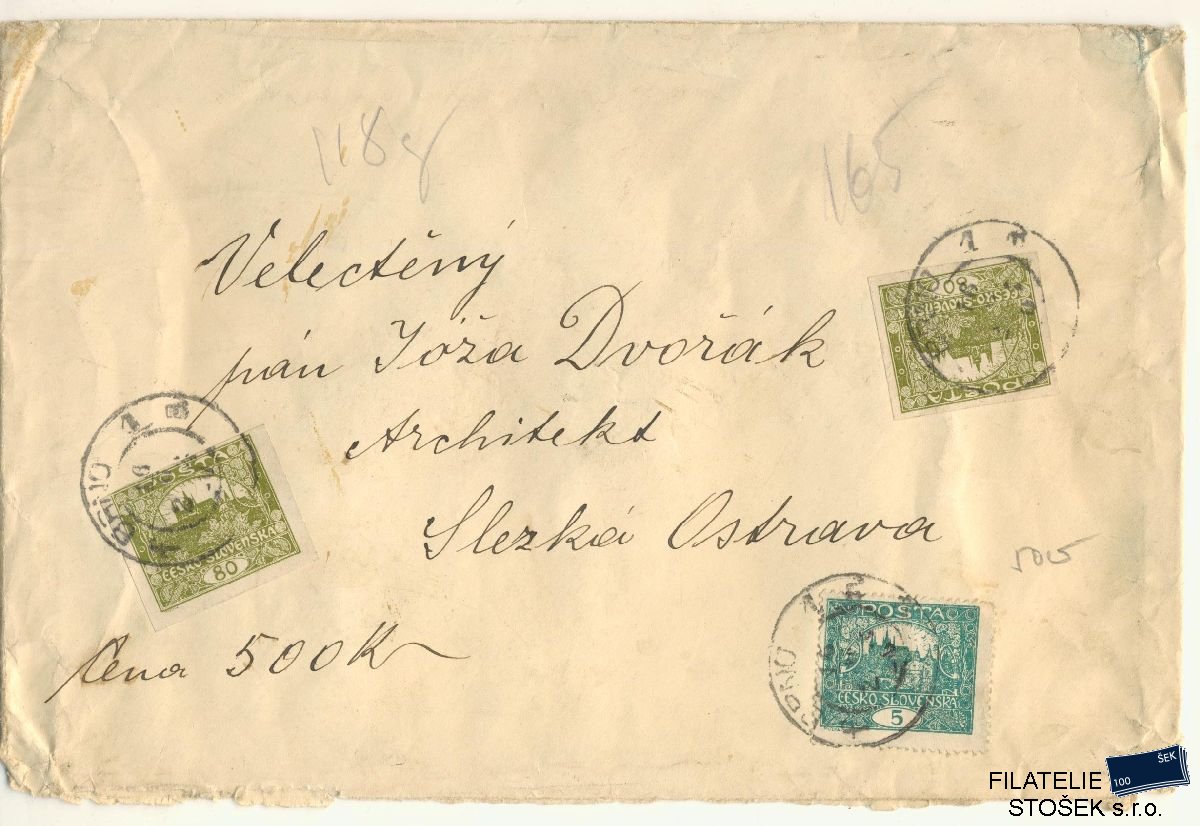 118g
165
Velectěný
pán Jóža Dvořák
Architekt
Slezká Ostrava
Cena 500K
POSTA
ČESKO SLOVENSKÁ
80
POSTA
ČESKO SLOVENSKÁ
80
POSTA
ČESKO SLOVENSKÁ
5
BRNO 1
FILATELIE
STOŠEK s.r.o.
100
ŠEK